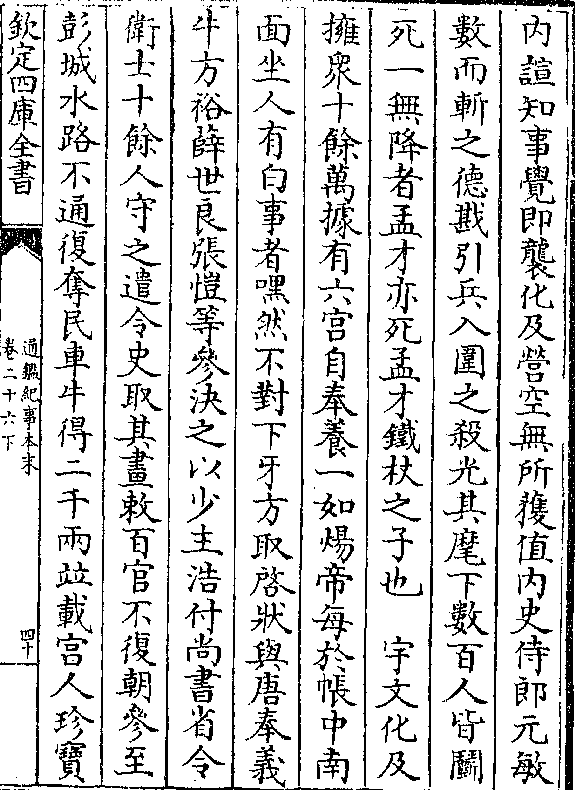 内諠知事覺即襲化及營空無所獲值内史侍郎元敏
數而斬之德戡引兵入圍之殺光其麾下數百人皆鬭
死一無降者孟才亦死孟才鐵杖之子也　宇文化及
擁衆十餘萬據有六宫自奉養一如煬帝每於帳中南
面坐人有白事者嘿然不對下牙方取啓狀與唐奉義
牛方裕薛世良張愷等參決之以少主浩付尚書省令
衛士十餘人守之遣令史取其畫敕百官不復朝參至
彭城水路不通復奪民車牛得二千兩竝載宫人珍寶
欽定四庫全書
通鑑紀事本末
卷二十六下
四十